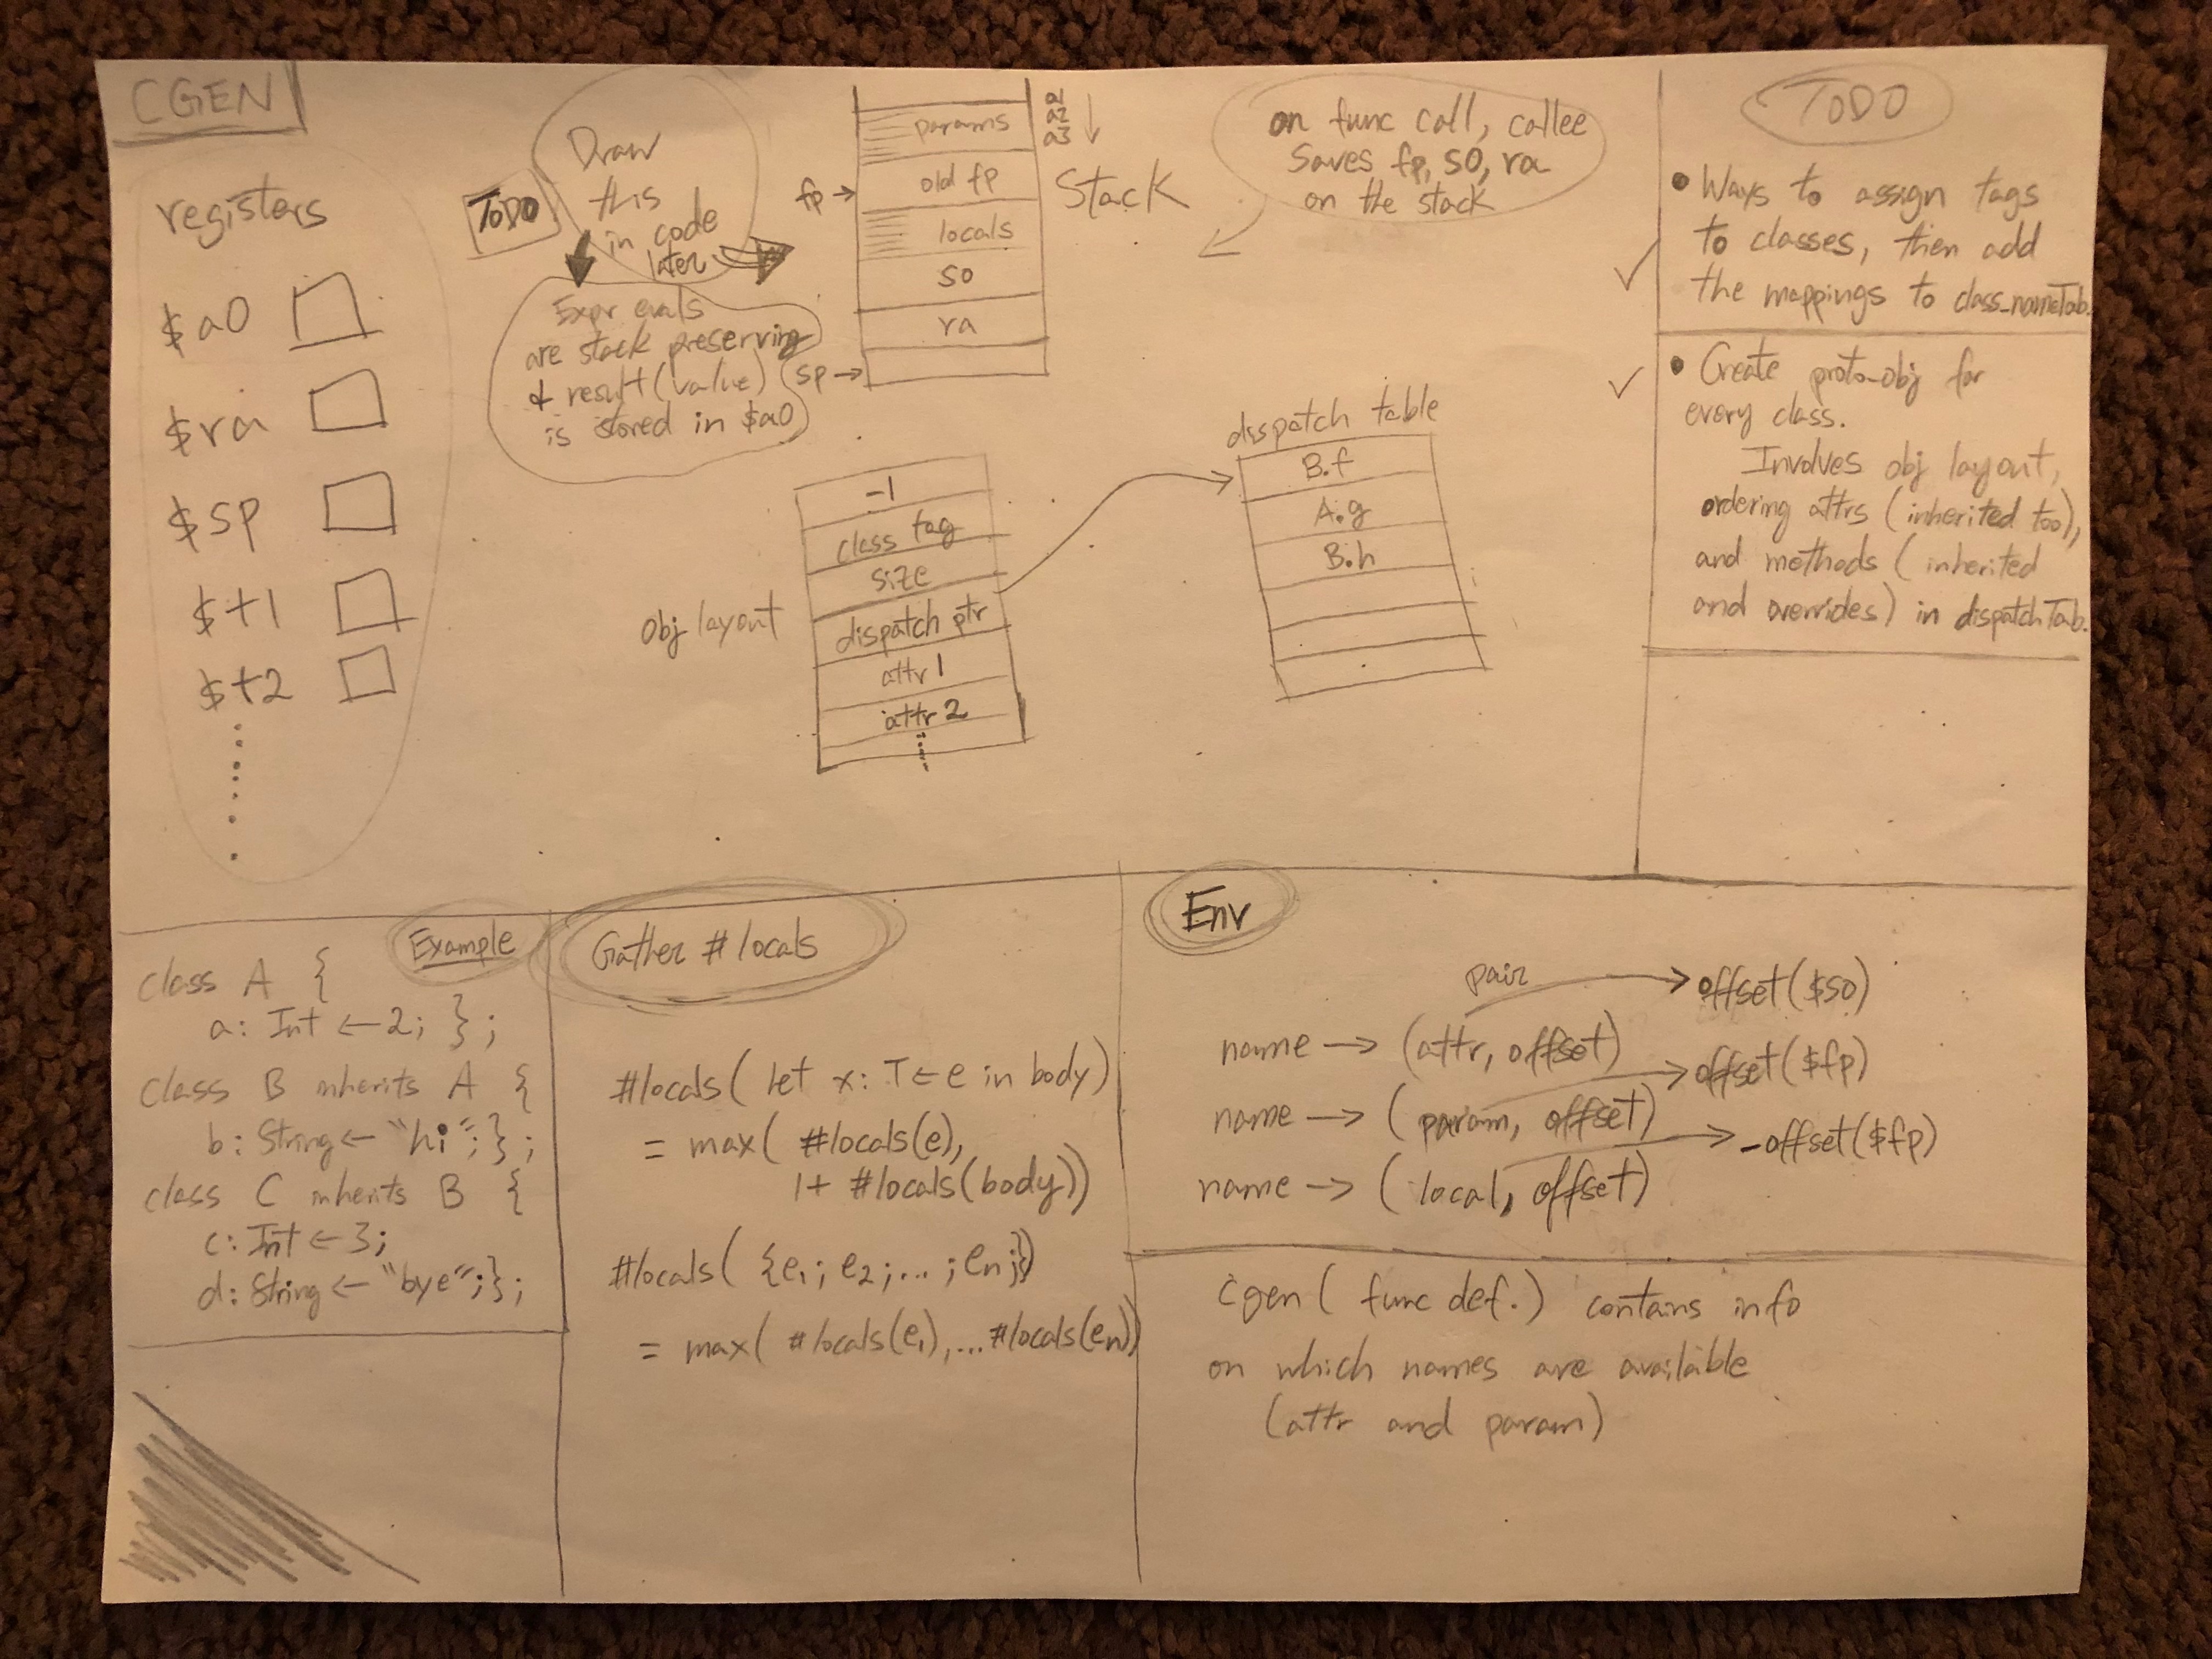 CGEN
registers
$a0
$ra
$sp
$t1
$t2
TODO
Draw
this
in code
later
Expr evals
are stack preserving
& result (value)
is stored in $a0
params
old fp
locals
s0
ra
fp →
sp →
a1
a2
a3
Stack
on func call, callee
saves fp, s0, ra
on the stack
obj layout
-1
class tag
size
dispatch ptr
attr 1
attr 2
dispatch table
B.f
A.g
B.h
TODO
• Ways to assign tags
to classes, then add
the mappings to class_nameTab.
• Create proto-obj for
every class.
Involves obj layout,
ordering attrs (inherited too),
and methods (inherited
and overrides) in dispatchTab.
Example
class A {
a: Int ← 2; };
class B inherits A {
b: String ← "hi"; };
class C inherits B {
c: Int ← 3;
d: String ← "bye"; };
Gather # locals
#locals( let x: T ← e in body)
= max( #locals(e),
1+ #locals(body))
#locals( {e1; e2; ... ; en;})
= max( #locals(e1),... #locals(en))
Env
pair
name → (attr, offset)
offset($s0)
name → (param, offset)
offset($fp)
name → (local, offset)
-offset($fp)
cgen( func def.) contains info
on which names are available
(attr and param)